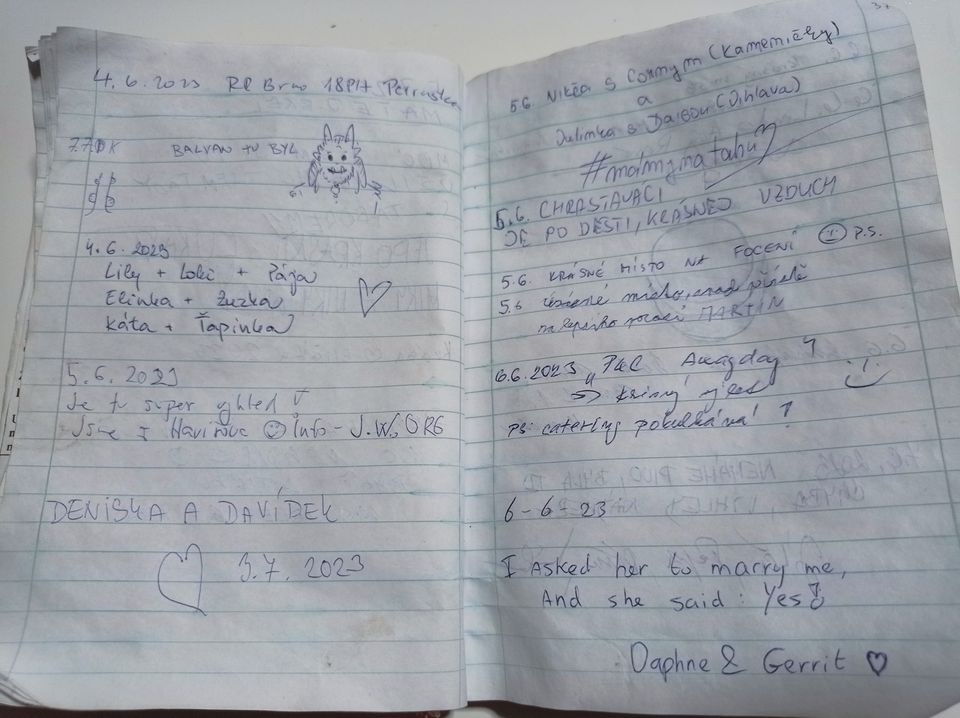 4.6.2023 RR Brno 18PH Petruska
BALVAN TU BYL
4.6.2023
Lily + Loki + Pája
Elinka + Zuzka
Káta + Ťapinka
5.6.2023
Je tu super vyhled!
Jsme z Havířova Info - J.W.ORG
DENISKA A DAVÍDEK
3.7.2023
5.6. Nikča s Cormym (Kameničky)
a
Julinka s (Jihlava)
#málmymatahu
5.6. CHRASTAVÁCI
JE PO DEŠTI, KRÁSNEJ VZDUCH
5.6. KRÁSNÉ MÍSTO NA FOCENÍ P.S.
5.6 místo, snad příště
MARTIN
6.6.2023 "P&C Awayday"
→ krásný výlet
PS: catering pokulhává!
6-6-23
I Asked her to marry me,
And she said: Yes!
Daphne & Gerrit